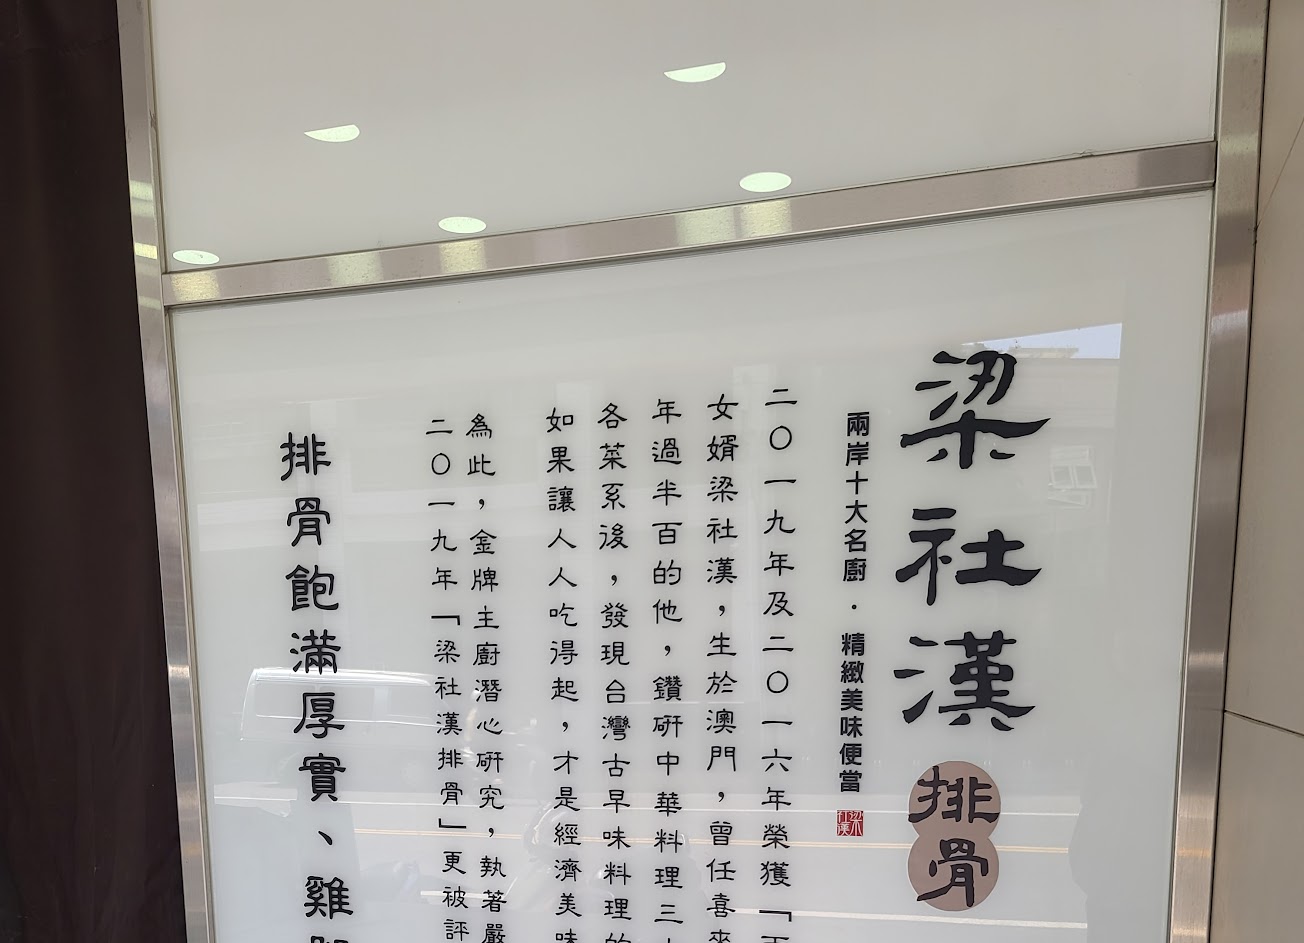 梁社漢
排骨
兩岸十大名廚・精緻美味便當
二〇一九年及二〇一六年榮獲「
女婿梁社漢，生於澳門，曾任喜來
年過半百的他，鑽研中華料理三
各菜系後，發現台灣古早味料理的
如果讓人人吃得起，才是經濟美味
為此，金牌主廚潛心研究，執著嚴
二〇一九年「梁社漢排骨」更被評
排骨飽滿厚實、雞